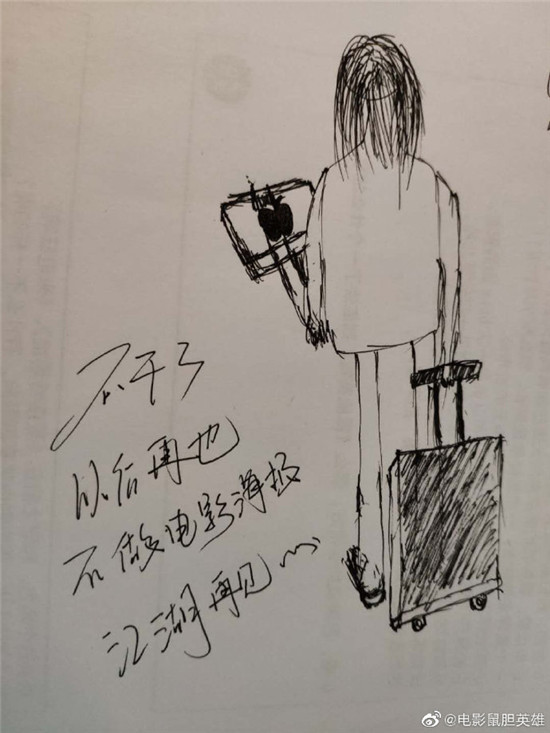 不干了
以后再也
不做电影海报
江湖再见
@电影鼠胆英雄